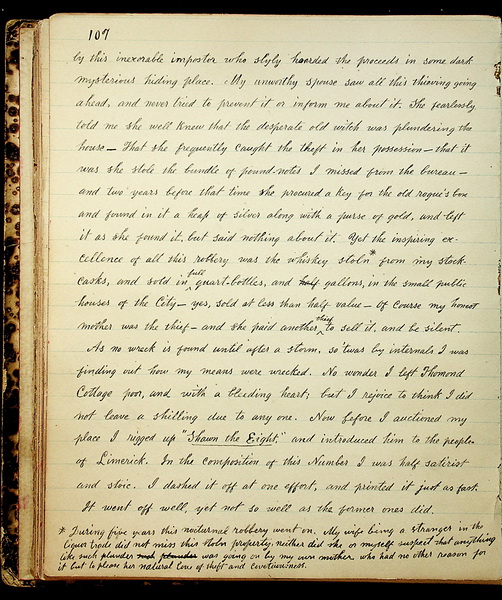 107
by this inexorable impostor who slyly hoarded the proceeds in some dark
mysterious hiding place. My unworthy spouse saw all this thieving going
ahead, and never tried to prevent it or inform me about it. She fearlessly
told me she well knew that the desperate old witch was plundering the
house — That she frequently caught the theft in her possession — that it
was she stole the bundle of pound-notes I missed from the bureau —
and two years before that time she procured a key for the old rogue's box
and found in it a heap of silver along with a purse of gold, and left
it as she found it, but said nothing about it. Yet the inspiring ex-
cellence of all this robbery was the whiskey stoln* from my stock
casks, and sold in full quart-bottles, and half gallons, in the small public
houses of the City — yes, sold at less than half value — Of course my honest
mother was the thief — and she paid another thief to sell it, and be silent.
As no wreck is found until after a storm, so 'twas by internals I was
finding out how my means were wrecked. No wonder I left Thomond
Cottage poor, and with a bleeding heart; but I rejoice to think I did
not leave a shilling due to any one. Now before I auctioned my
place I rigged up "Shawn the Eight," and introduced him to the people
of Limerick. In the composition of this Number I was half satirist
and stoic. I dashed it off at one effort, and printed it just as fast.
It went off well, yet not so well as the former ones did.
* During five years this nocturnal robbery went on. My wife being a stranger in the
liquor trade did not miss this stoln property, neither did she or myself suspect that anything
like such plunder such plunder was going on by my own mother who had no other reason for
it but to please her natural love of theft and covetousness.